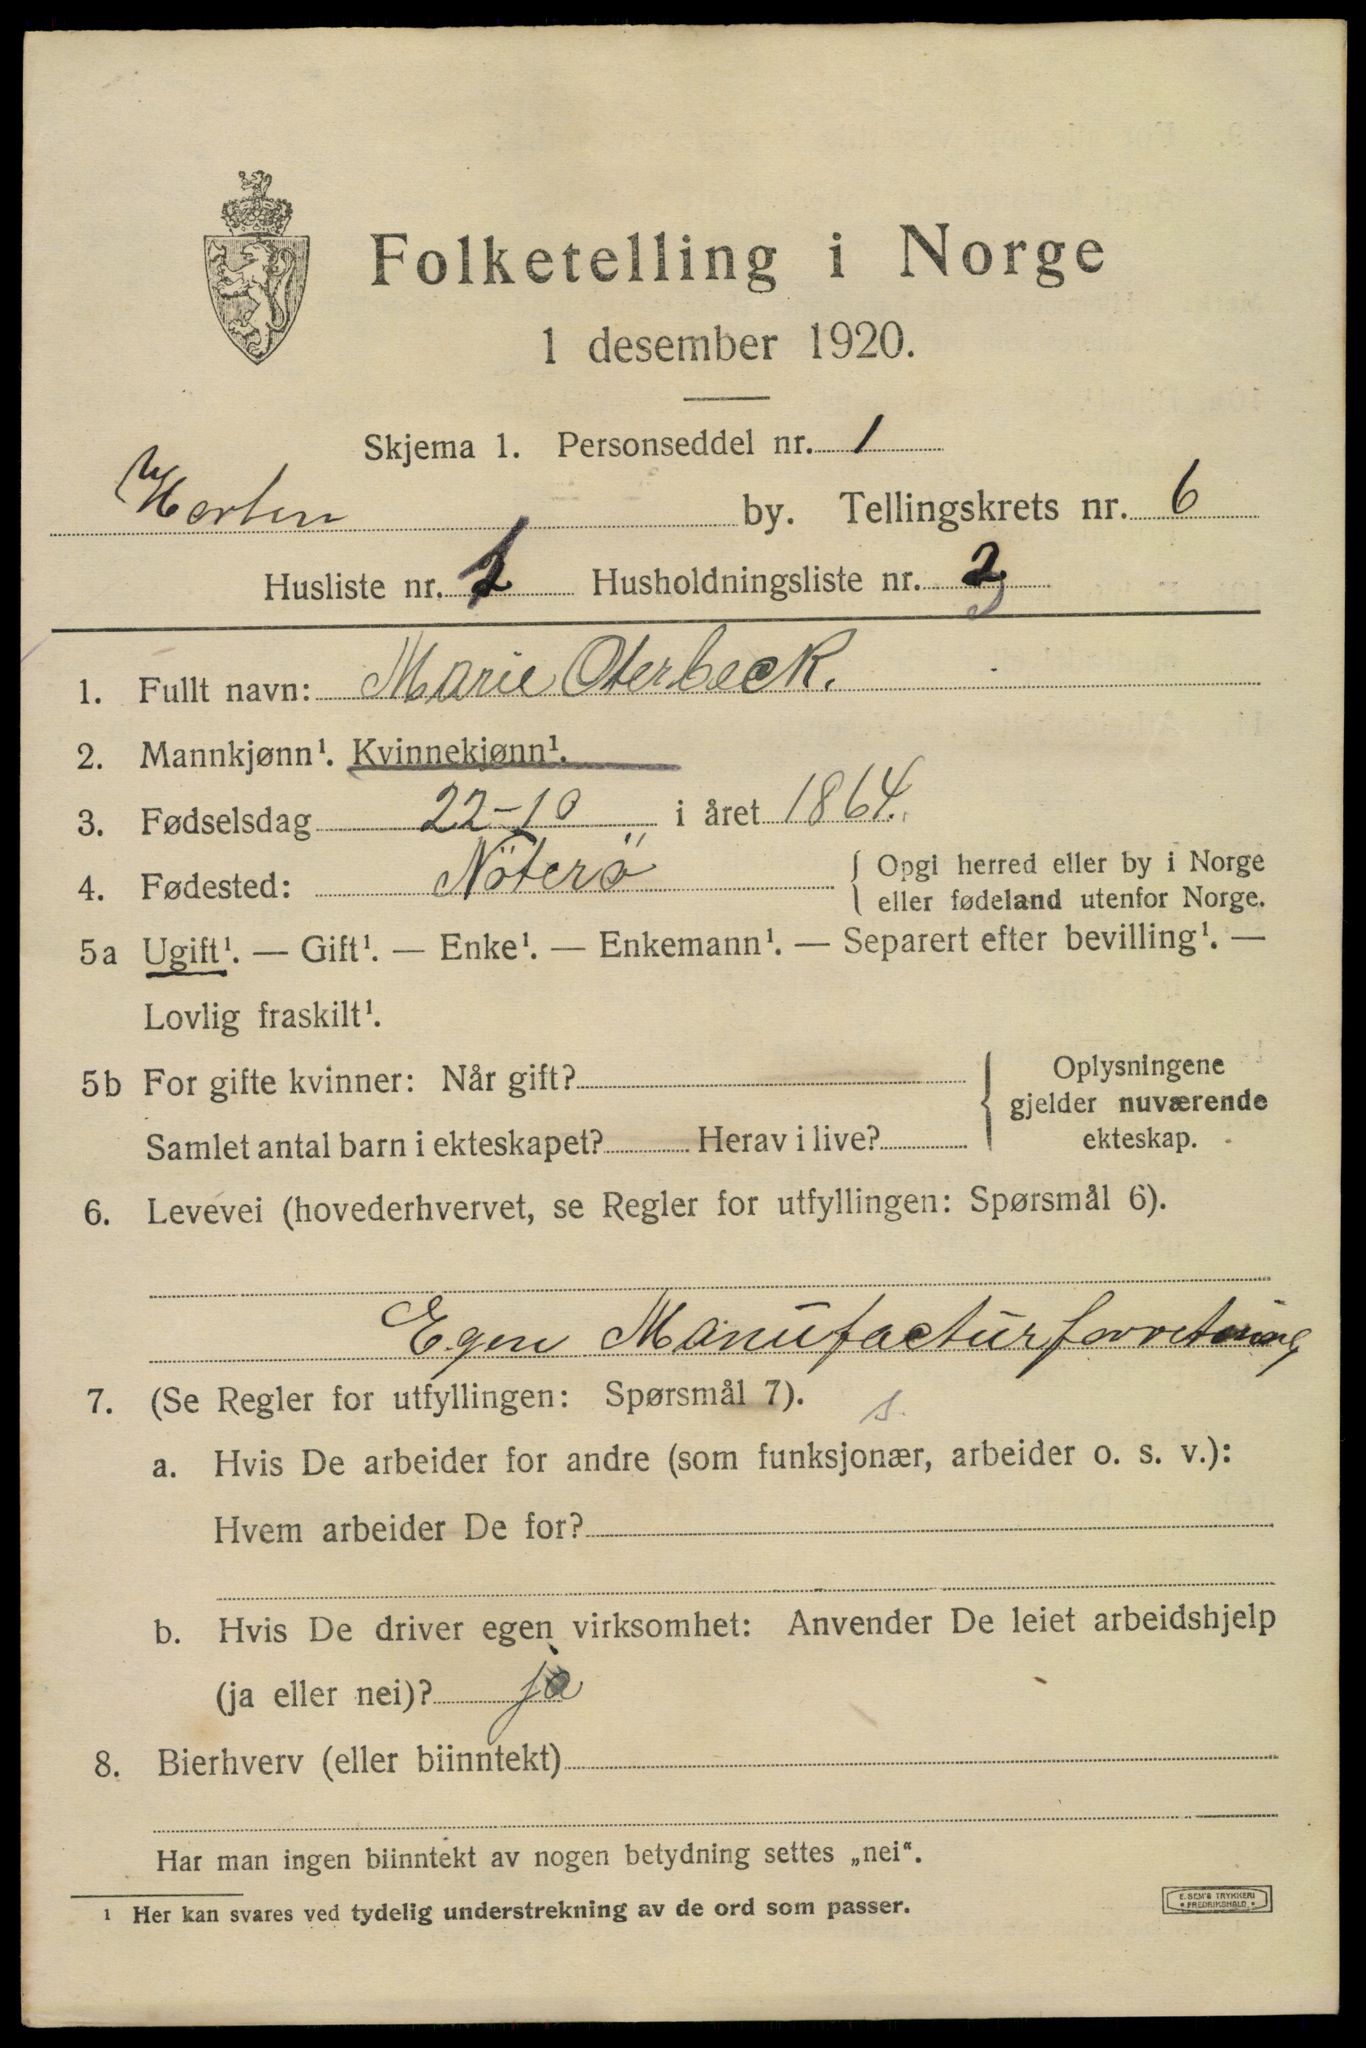 Folketelling i Norge
1 desember 1920.
Skjema 1. Personseddel nr. 1
Horten by. Tellingskrets nr. 6
Husliste nr. Husholdningsliste nr. 2
1. Fullt navn: Marie Oterbeck.
2. Mannkjønn¹. Kvinnekjønn¹.
3. Fødselsdag 22-10 i året 1864.
4. Fødested: Nöterö { Opgi herred eller by i Norge
eller fødeland utenfor Norge.
5a Ugift¹. — Gift¹. — Enke¹. — Enkemann¹. — Separert efter bevilling¹. —
Lovlig fraskilt¹.
5b For gifte kvinner: Når gift? { Oplysningene
gjelder nuværende
Samlet antal barn i ekteskapet? Herav i live? ekteskap.
6. Levevei (hovederhvervet, se Regler for utfyllingen: Spørsmål 6).
Egen Manufacturforretning
7. (Se Regler for utfyllingen: Spørsmål 7). s.
a. Hvis De arbeider for andre (som funksjonær, arbeider o. s. v.):
Hvem arbeider De for?
b. Hvis De driver egen virksomhet: Anvender De leiet arbeidshjelp
(ja eller nei)? ja
8. Bierhverv (eller biinntekt)
Har man ingen biinntekt av nogen betydning settes „nei“.
¹ Her kan svares ved tydelig understrekning av de ord som passer.
E. SEM'S TRYKKERI
* FREDRIKSHALD. *